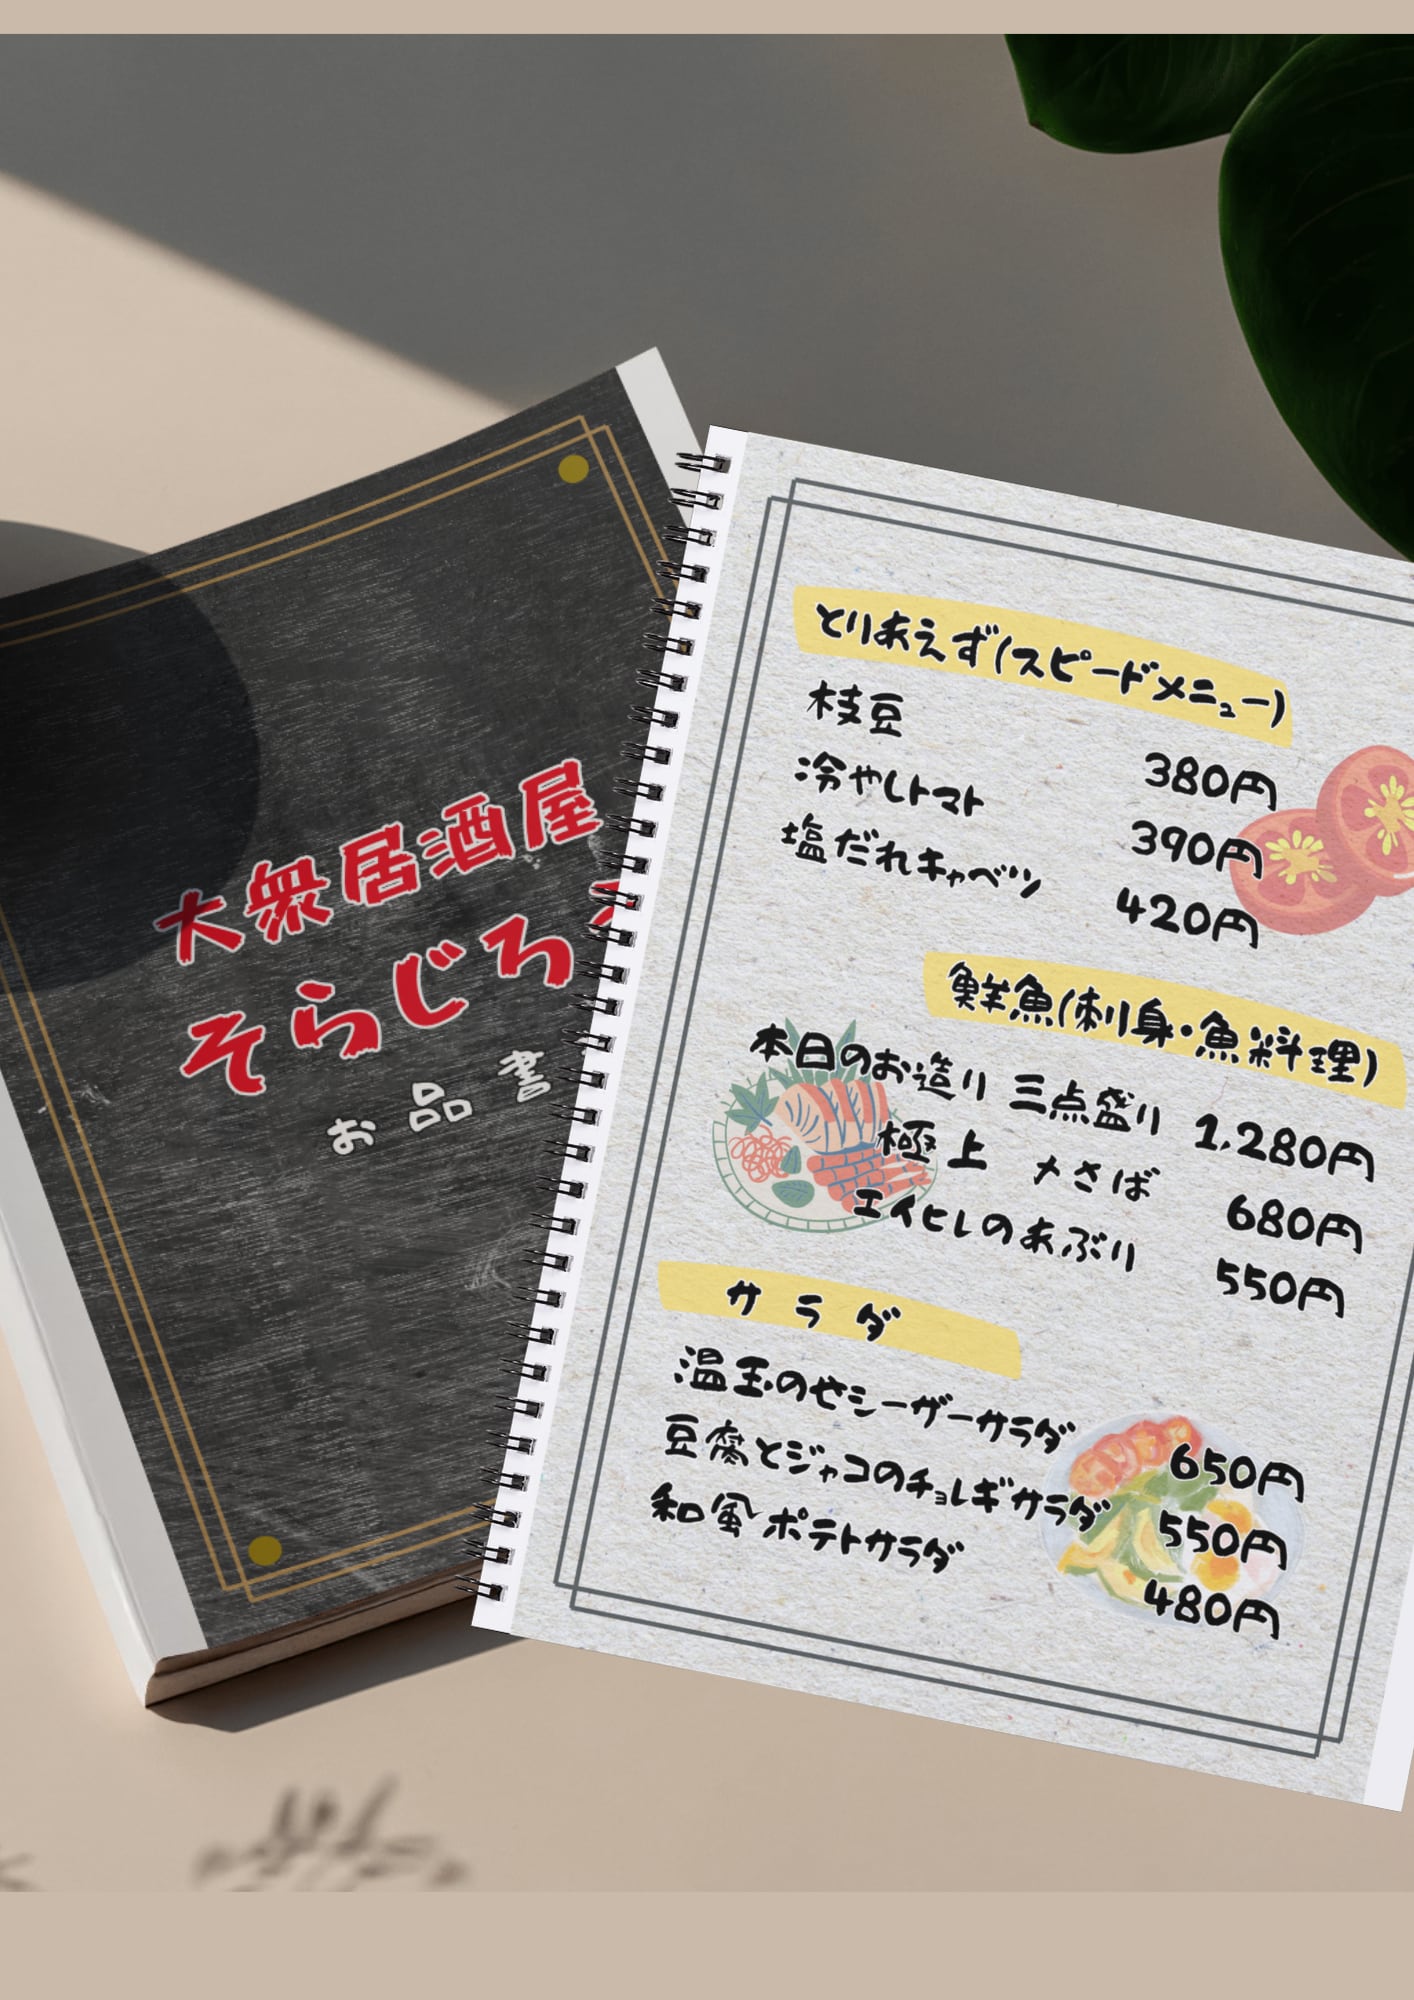 大衆居酒屋
そらじろ
お品書
とりあえず(スピードメニュー)
枝豆 380円
冷やしトマト 390円
塩だれキャベツ 420円
鮮魚(刺身・魚料理)
本日のお造り 三点盛り 1,280円
極上 〆さば 680円
エイヒレのあぶり 550円
サラダ
温玉のせシーザーサラダ 650円
豆腐とジャコのチョレギサラダ 550円
和風ポテトサラダ 480円